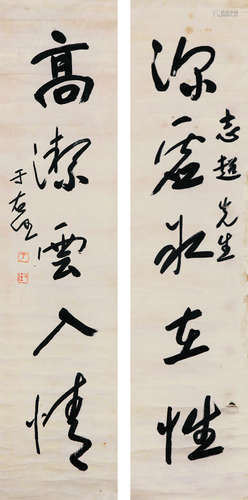 深虛冰在性
志超先生
高潔雲入情
于右任